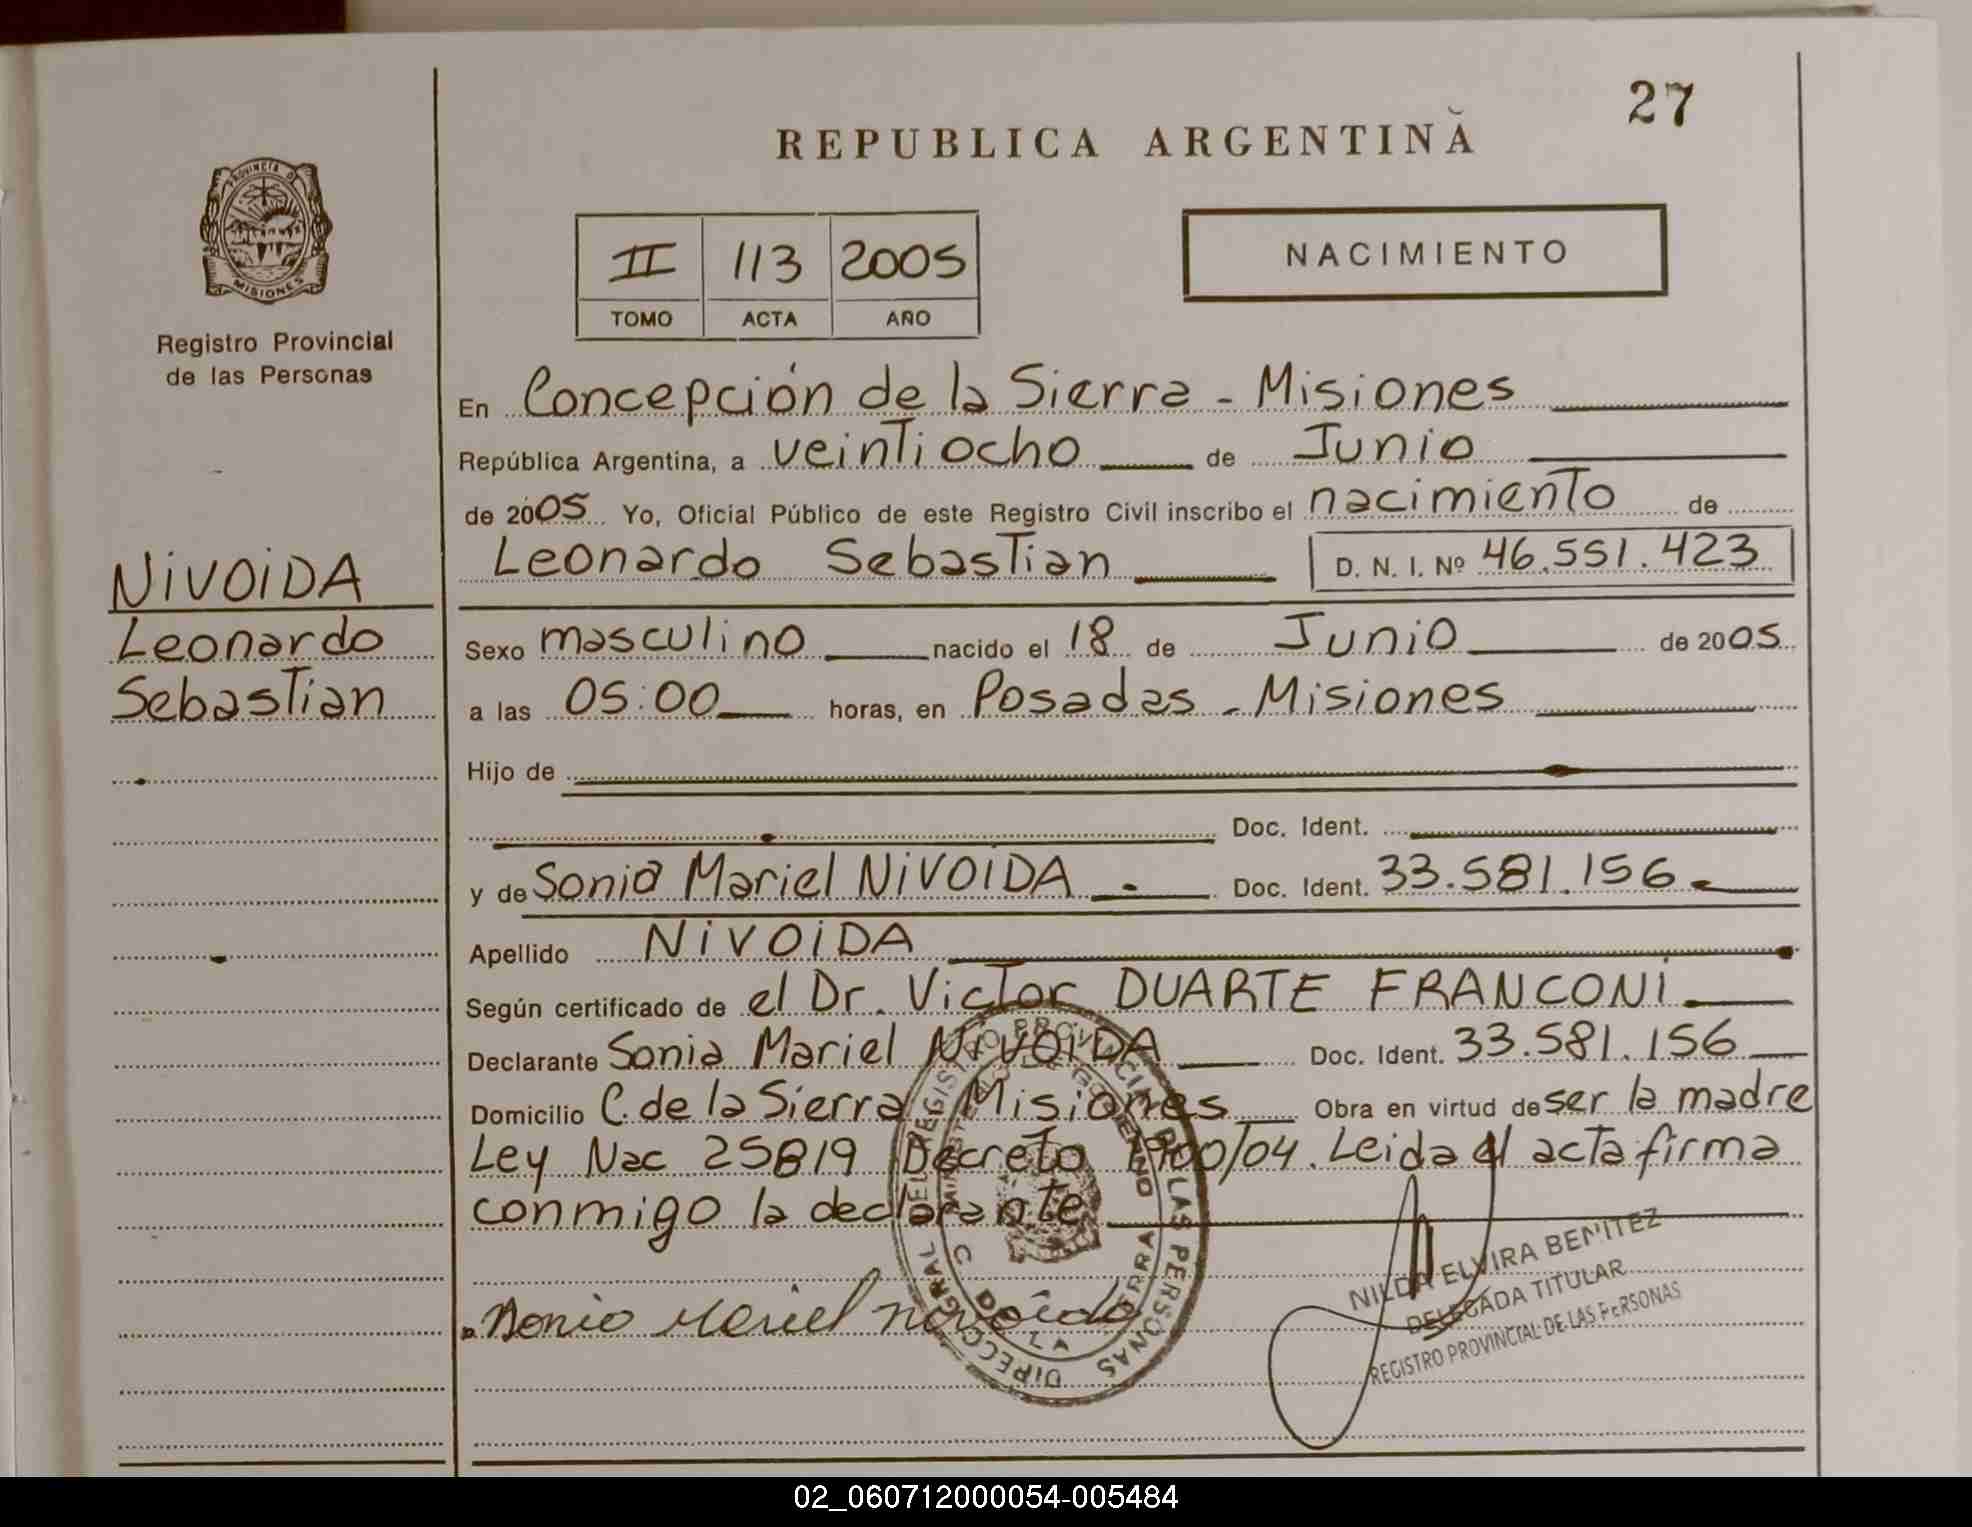 27
REPUBLICA ARGENTINA
PROVINCIA DE
MISIONES
Registro Provincial
de las Personas
II 113 2005
TOMO ACTA AÑO
NACIMIENTO
En Concepción de la Sierra - Misiones
República Argentina, a veintiocho de Junio
de 2005 Yo, Oficial Público de este Registro Civil inscribo el nacimiento de
Leonardo Sebastian D. N. I. Nº 46.551.423
NIVOIDA
Leonardo
Sebastian
Sexo masculino nacido el 18 de Junio de 2005
a las 05:00 horas, en Posadas - Misiones
Hijo de
Doc. Ident.
y de Sonia Mariel NIVOIDA Doc. Ident. 33.581.156
Apellido NIVOIDA
Según certificado de el Dr. Victor DUARTE FRANCONI
Declarante Sonia Mariel NIVOIDA Doc. Ident. 33.581.156
Domicilio C. de la Sierra Misiones Obra en virtud de ser la madre
Ley Nac 25819 Decreto 1900/04. Leida el acta firma
conmigo la declarante
REGISTRO PROVINCIAL DE LAS PERSONAS
NILDA ELVIRA BENITEZ
DELEGADA TITULAR
REGISTRO PROVINCIAL DE LAS PERSONAS
02_060712000054-005484